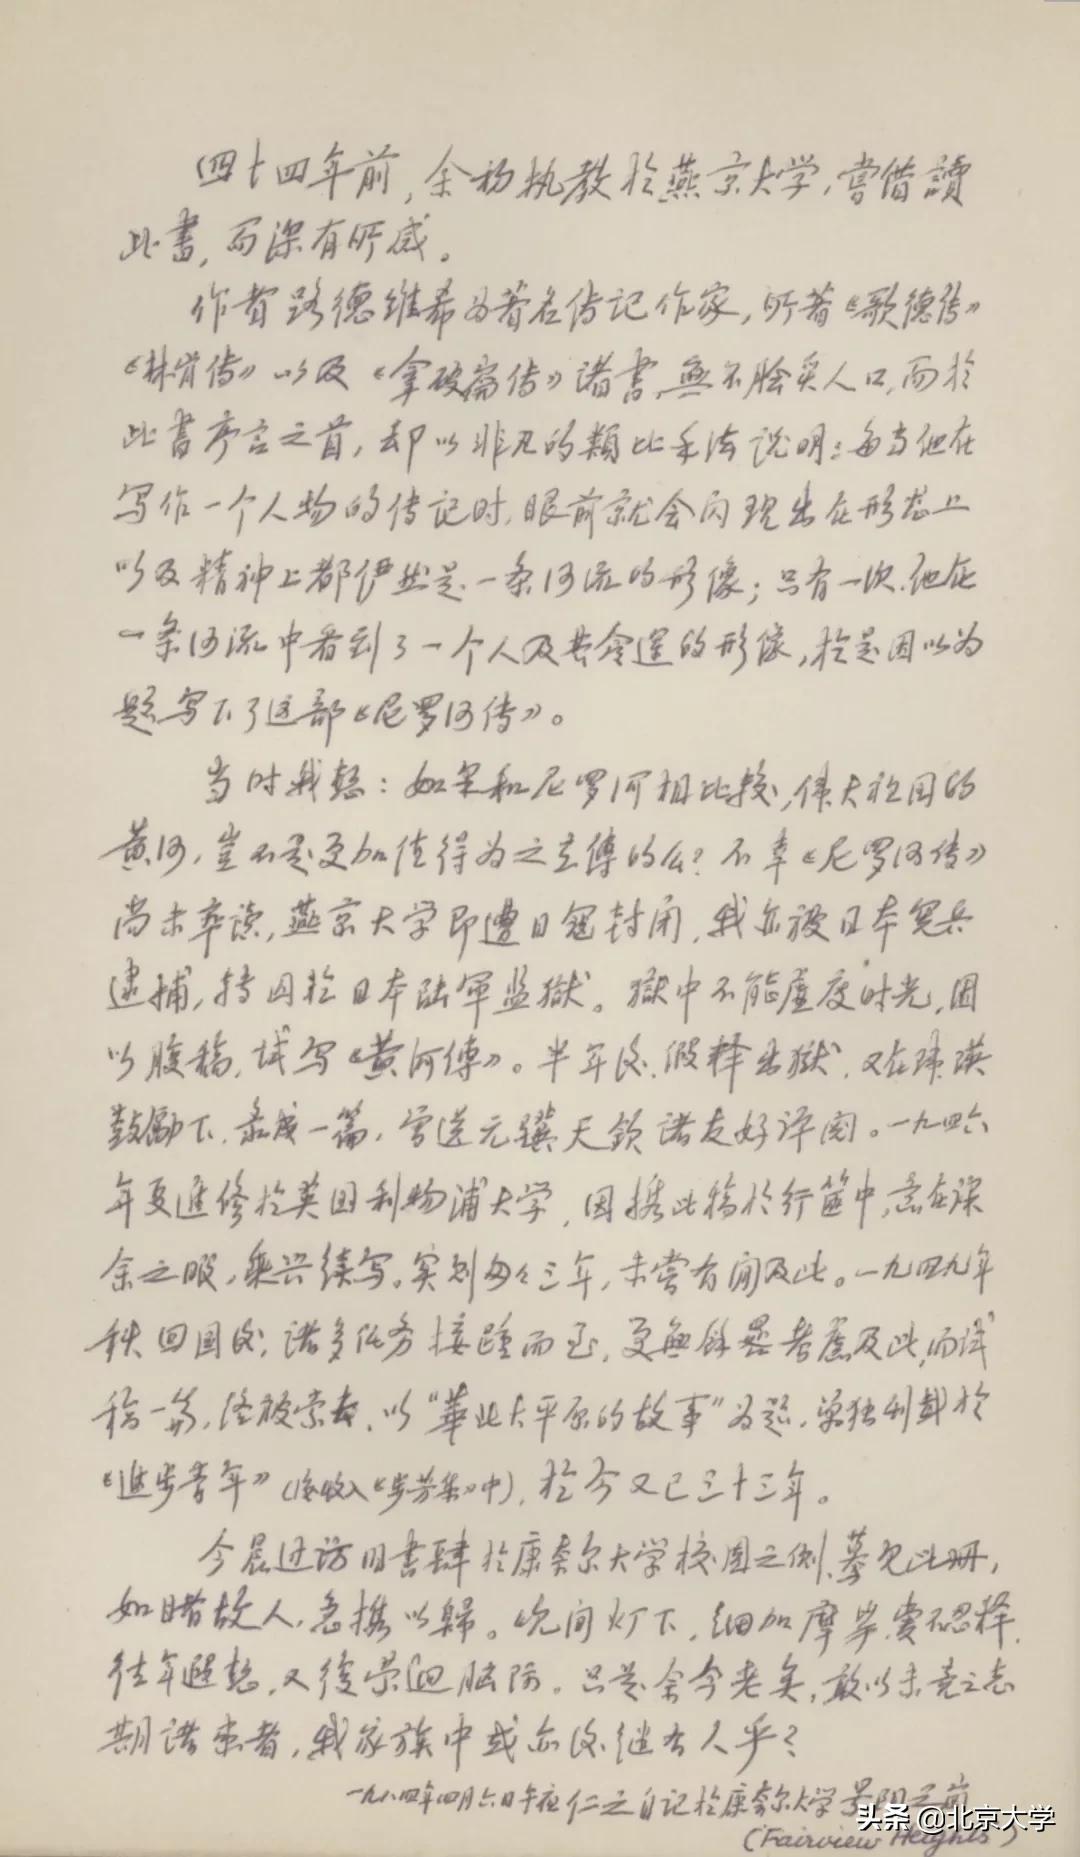 四十四年前，余初执教於燕京大学，嘗借讀
此書，而深有所感。
作者路德维希为著名传记作家，所著《歌德传》
《林肯传》以及《拿破崙传》諸書，無不膾炙人口，而於
此書序言之首，却以非凡的類比手法说明：每当他在
写作一个人物的传记时，眼前就会闪现出在形态上
以及精神上都俨然是一条河流的形像；只有一次，他在
一条河流中看到了一个人及其命运的形像，於是因以为
题写下了这部《尼罗河传》。
当时我想：如果和尼罗河相比较，伟大祖国的
黄河，豈不是更加值得为之立傳的么？不幸《尼罗河传》
尚未卒读，燕京大学即遭日寇封闭，我亦被日本宪兵
逮捕，转囚於日本陆军监獄。獄中不能虚度时光，因
以腹稿，试写《黄河傳》。半年後，假释出獄，又在瑋瑛
鼓励下，录成一篇，曾送元驥天钦诸友好评阅。一九四六
年夏進修於英国利物浦大学，因携此稿於行篋中，意在课
余之暇，乘兴续写。实则匆匆三年，未嘗有闻及此。一九四九年
秋回国後，诸多任务接踵而至，更無餘暑考慮及此，而试
稿一篇，终被索去，以“華北大平原的故事”为题，单独刊载於
《進步青年》（後收入《步芳集》中），於今又已三十三年。
今晨过访旧書肆於康奈尔大学校园之侧，蓦见此册，
如晤故人，急携以歸。晚间灯下，细加摩挲，爱不忍释，
往年遐想，又復縈迴脑际。只是余今老矣，敢以未竟之志
期诸来者，我家族中或亦後继有人乎？
一九八四年四月六日午夜仁之自记於康奈尔大学景阳之岗
(Fairview Heights)
头条 @北京大学